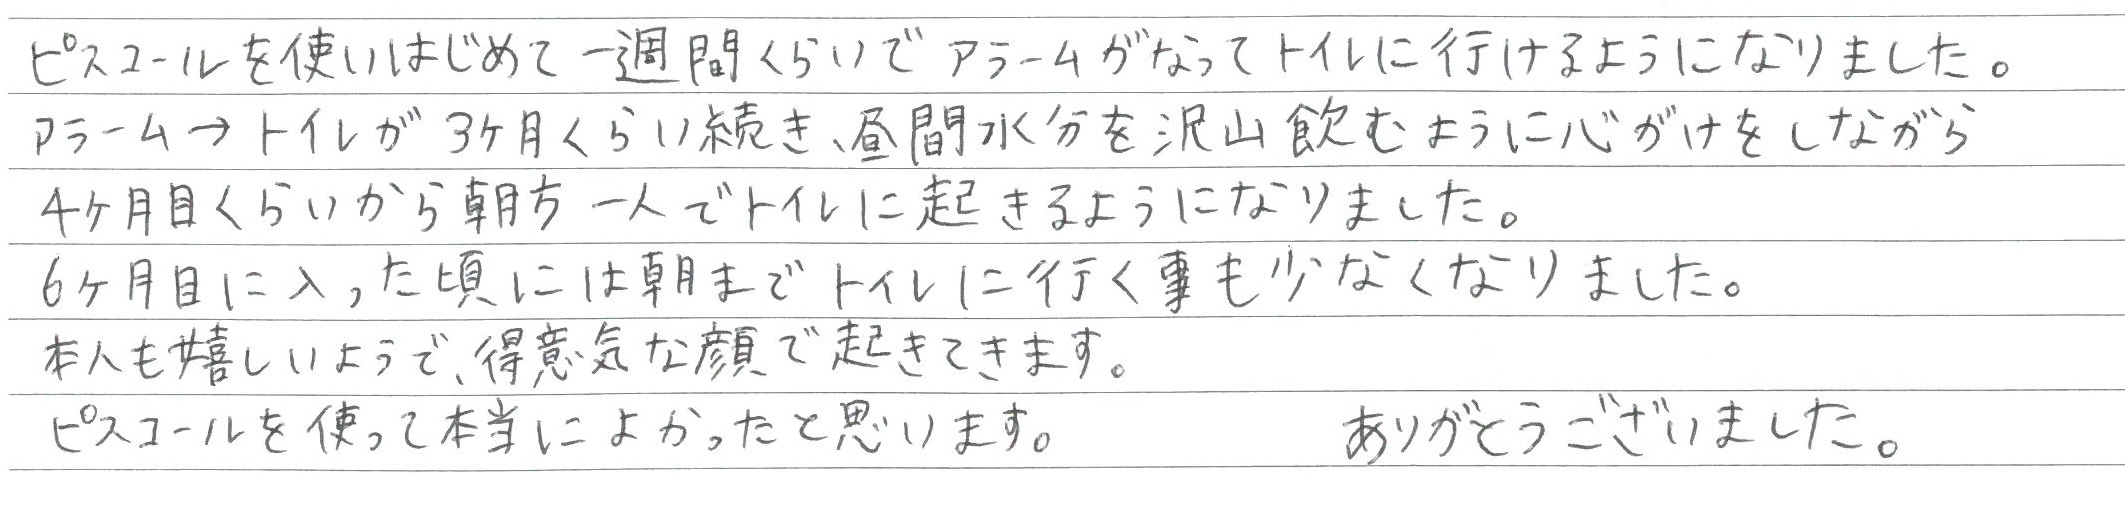 ピスコールを使いはじめて一週間くらいでアラームがなってトイレに行けるようになりました。
アラーム→トイレが3ケ月くらい続き、昼間水分を沢山飲むように心がけをしながら
4ケ月目くらいから朝方一人でトイレに起きるようになりました。
6ケ月目に入った頃には朝までトイレに行く事も少なくなりました。
本人も嬉しいようで、得意気な顔で起きてきます。
ピスコールを使って本当によかったと思います。 ありがとうございました。